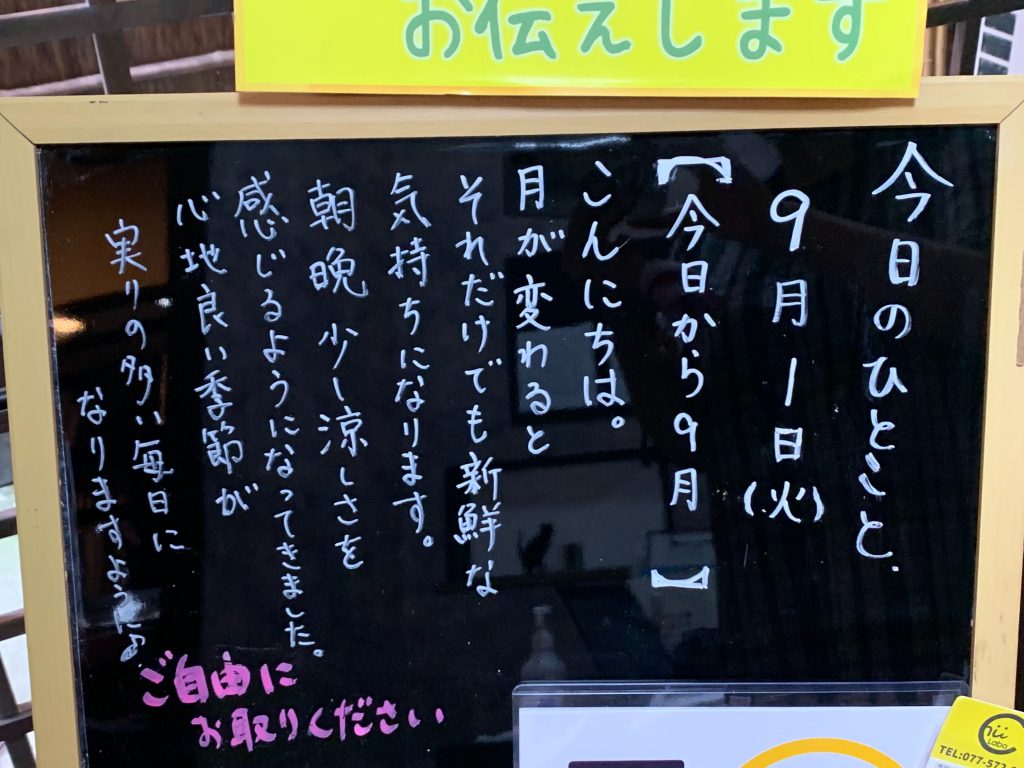 お伝えします
今日のひとこと.
9月1日(火)
【今日から9月】
こんにちは。
月が変わると
それだけでも新鮮な
気持ちになります。
朝晩少し涼しさを
感じるようになってきました。
心地良い季節が
実りの多い毎日に
なりますように♪
ご自由に
お取りください
Labo
TEL:077-573-